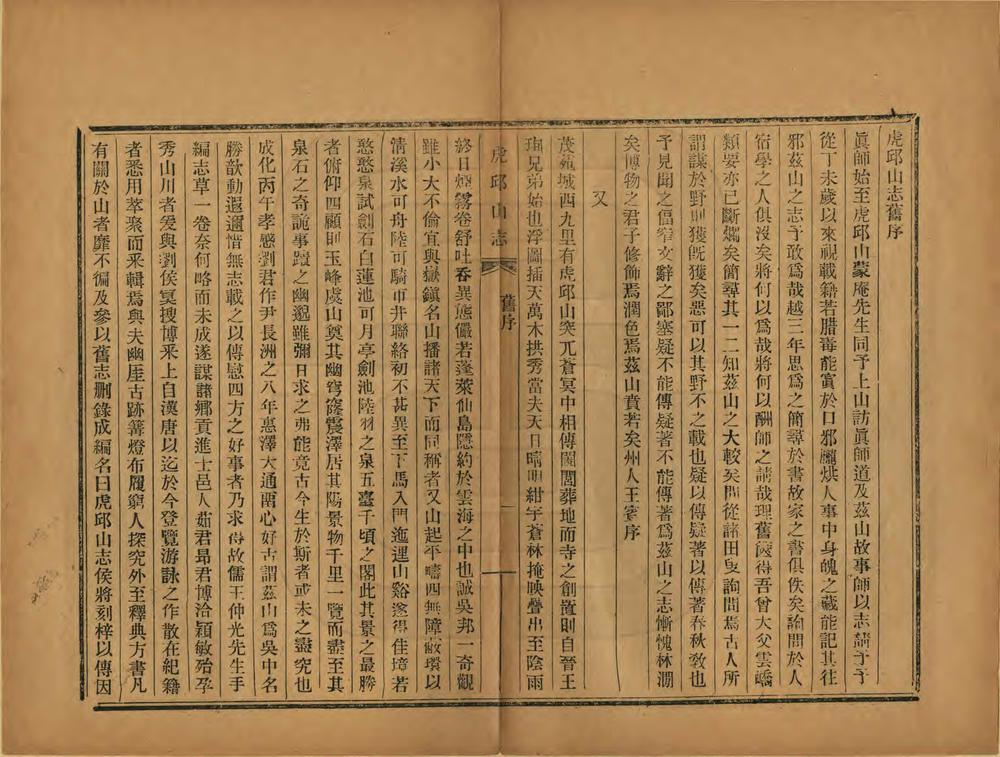 虎邱山志舊序
眞師始至虎邱山蒙庵先生同予上山訪眞師道及茲山故事師以志請于予
從丁未歲以來視載籍若腊毒能寘於口邪膼烘人事中身魄之藏能記其往
邪茲山之志予敢爲哉越三年思爲之簡尋於書故家之書俱佚矣詢問於人
宿學之人俱沒矣將何以爲哉將何以酬師之請哉理舊篋得吾曾大父雲嶠
類要亦已斷爛矣簡尋其一二知茲山之大較矣間從諸田叟詢問焉古人所
謂謀於野則獲旣獲矣惡可以其野不之載也疑以傳疑著以傳著春秋敎也
予見聞之偪窄文辭之鄙塞疑不能傳疑著不能傳著爲茲山之志慚愧林澗
矣博物之君子修飾焉潤色焉茲山賁若矣州人王賓序
又
茂苑城西九里有虎邱山突兀蒼冥中相傳闔閭葬地而寺之創置則自晉王
珣兄弟始也浮圖插天萬木拱秀當夫天日晴明紺宇蒼林掩映疊出至陰雨
終日煙霧卷舒吐呑異態儼若蓬萊仙島隱約於雲海之中也誠吳邦一奇觀
虎邱山志
舊序
一
雖小大不倫宜與嶽鎭名山播諸天下而同稱者又山起平疇四無障蔽環以
淸溪水可舟陸可騎市井聯絡初不甚異至下馬入門迤邐山谿遂得佳境若
憨憨泉試劍石白蓮池可月亭劍池陸羽之泉五臺千頃之閣此其景之最勝
者俯仰四顧則玉峰虞山奠其幽穹窿震澤居其陽景物千里一覽而盡至其
泉石之奇詭事蹟之幽邈雖彌日求之弗能竟古今生於斯者或未之盡究也
成化丙午孝感劉君作尹長洲之八年惠澤大通雨心好古謂茲山爲吳中名
勝歆動遐邇惜無志載之以傳慰四方之好事者乃求得故儒王仲光先生手
編志草一卷奈何略而未成遂謀諸鄉貢進士邑人茹君昂君博洽穎敏殆孕
秀山川者爰與劉侯冥搜博采上自漢唐以迄於今登覽游詠之作散在紀籍
者悉用萃聚而采輯焉與夫幽厓古跡篝燈布履窮人探究外至釋典方書凡
有關於山者靡不徧及參以舊志删錄成編名曰虎邱山志侯將刻梓以傳因